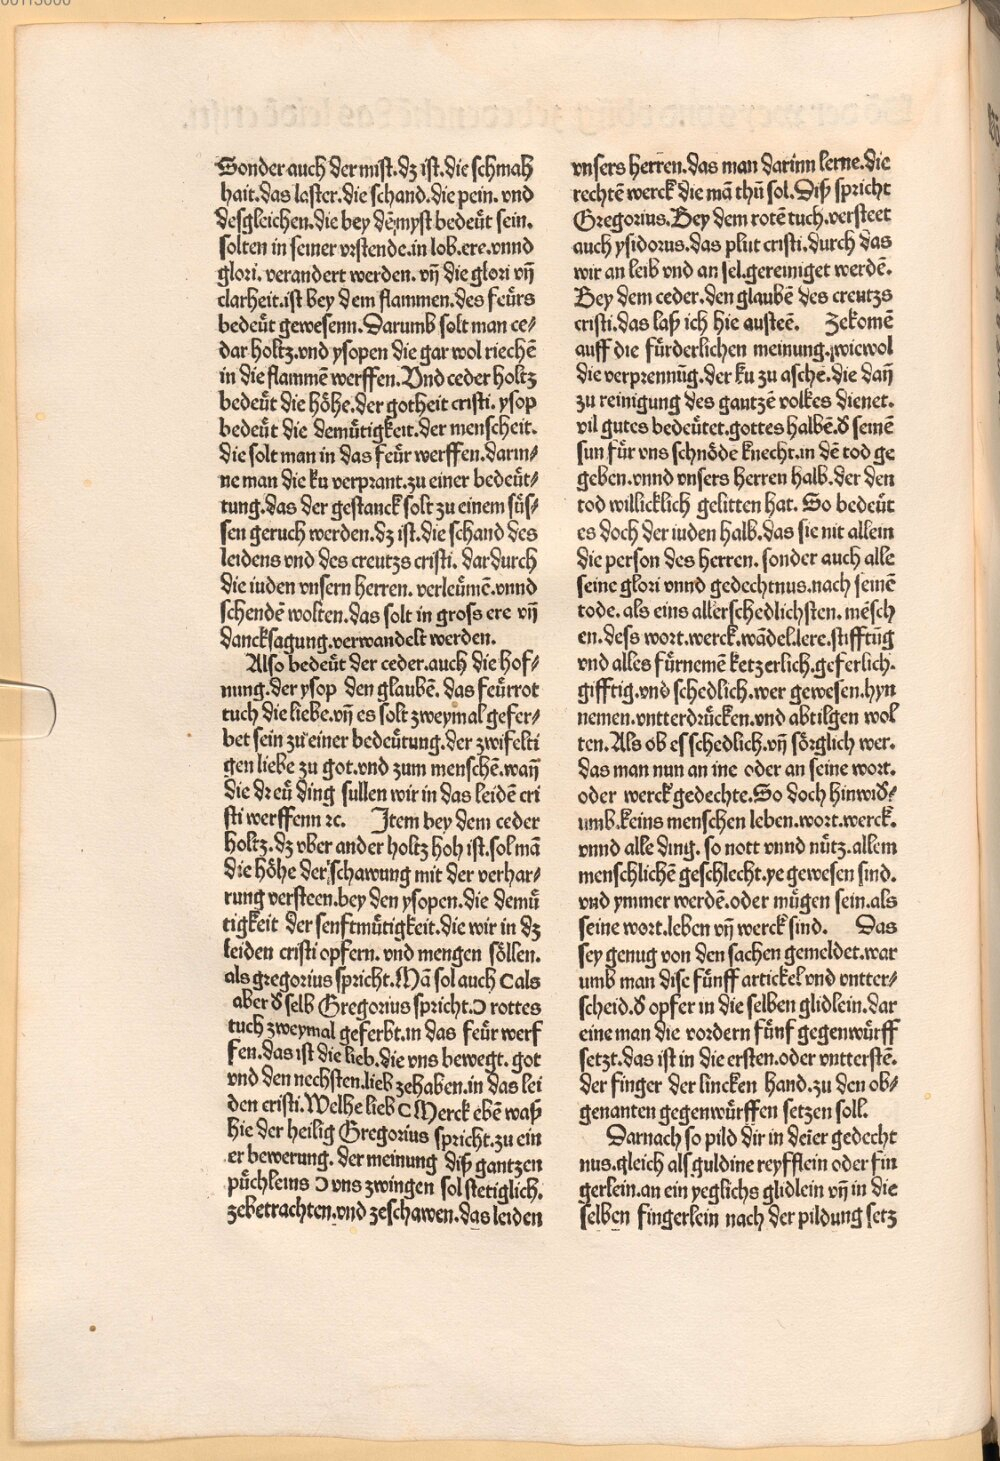 Sonder auch der mist.dz ist.die schmah
hait.das laster.die schand.die pein.vnd
desgleichen.die bey dē myst bedeüt sein.
solten in seiner vrstende.in lob.ere.vnnd
glori.verandert werden.vn̄ die glori vn̄
clarheit.ist bey dem flammen.des feürs
bedeüt gewesenn.Darumb solt man ce/
dar holtz.vnd ysopen die gar wol riechē
in die flammē werffen.Vnd ceder holtz
bedeüt die höhe.der gotheit cristi.ysop
bedeüt die demütigkeit.der menscheit.
die solt man in das feür werffen.darin/
ne man die ku verprant.zu einer bedeüt/
tung.das der gestanck solt zu einem süs/
sen geruch werden.dz ist.die schand des
leidens vnd des creutzs cristi.dardurch
die iuden vnsern herren.verleümē.vnnd
schendē wolten.das solt in gross ere vn̄
dancksagung.verwandelt werden.
Also bedeüt der ceder.auch die hof/
nung.der ysop den glaubē.das feürrot
tuch die liebe.vn̄ es solt zweymal gefer/
bet sein zu einer bedeütung.der zwifelti
gen liebe zu got.vnd zum menschē.wan̄
die dreü ding sullen wir in das leidē cri
sti werffenn ⁊c. Item bey dem ceder
holtz.dz vber ander holtz hoh ist.sol mā
die höhe der schawung mit der verhar/
rung versteen.bey den ysopen.die demü
tigkeit der senftmütigkeit.die wir in dz
leiden cristi opfern.vnd mengen söllen.
als gregorius spricht.Mā sol auch C als
aber ď selb Gregorius spricht.Ɔ rottes
tuch zweymal geferbt.in das feür werf
fen.das ist die lieb.die vns bewegt.got
vnd den nechsten.lieb zehaben.in das lei
den cristi.Welhe lieb C Merck ebē waß
hie der heilig Gregorius spricht.zu ein
er bewerung.der meinung diß gantzen
püchleins Ɔ vns zwingen sol stetiglich.
zebetrachten.vnd zeschawen.das leiden
vnsers herren.das man darinn lerne.die
rechtē werck die mā thü sol.Diß spricht
Gregorius.Bey dem rotē tuch.versteet
auch ysidorus.das plut cristi.durch das
wir an leib vnd an sel.gereiniget werdē.
Bey dem ceder.den glaubē des creutzs
cristi.das laß ich hie austeē. Zekomē
auff die fürderlichen meinung.wiewol
die verprennūg.der ku zu asche.die dan̄
zu reinigung des gantzē volkes dienet.
vil gutes bedeütet.gottes halbē.ď seinē
sun für vns schnöde knecht.in dē tod ge
geben.vnnd vnsers herren halb.der den
tod willicklich gelitten hat. So bedeüt
es doch der iuden halb.das sie nit allein
die person des herren.sonder auch alle
seine glori vnnd gedechtnus.nach seinē
tode.als eins allerschedlichsten.mēsch
en.dess wort.werck.wādel.lere.stifftūg
vnd alles fürnemē ketzerlich.geferlich.
gifftig.vnd schedlich.wer gewesen.hyn
nemen.vntterdrücken.vnd abtilgen wol
ten.Als ob es schedlich.vn̄ sörglich wer.
das man nun an ine oder an seine wort.
oder werck gedechte.So doch hinwiď/
umb.keins menschen leben.wort.werck.
vnnd alle ding.so nott vnnd nütz.allem
menschlichē geschlecht.ye gewesen sind.
vnd ymmer werdē.oder mügen sein.als
seine wort.leben vn̄ werck sind. Das
sey genug von den sachen gemeldet.war
umb man dise fünff artickel vnd vntter/
scheid.ď opfer in die selben glidlein.dar
eine man die vordern fünf gegenwürff
setzt.das ist in die ersten.oder vntterstē.
der finger der lincken hand.zu den ob/
genanten gegenwürffen setzen soll.
Darnach so pild dir in deīer gedecht
nus.gleich als guldine reyfflein oder fin
gerlein.an ein yeglichs glidlein vn̄ in die
selben fingerlein nach der pildung setz